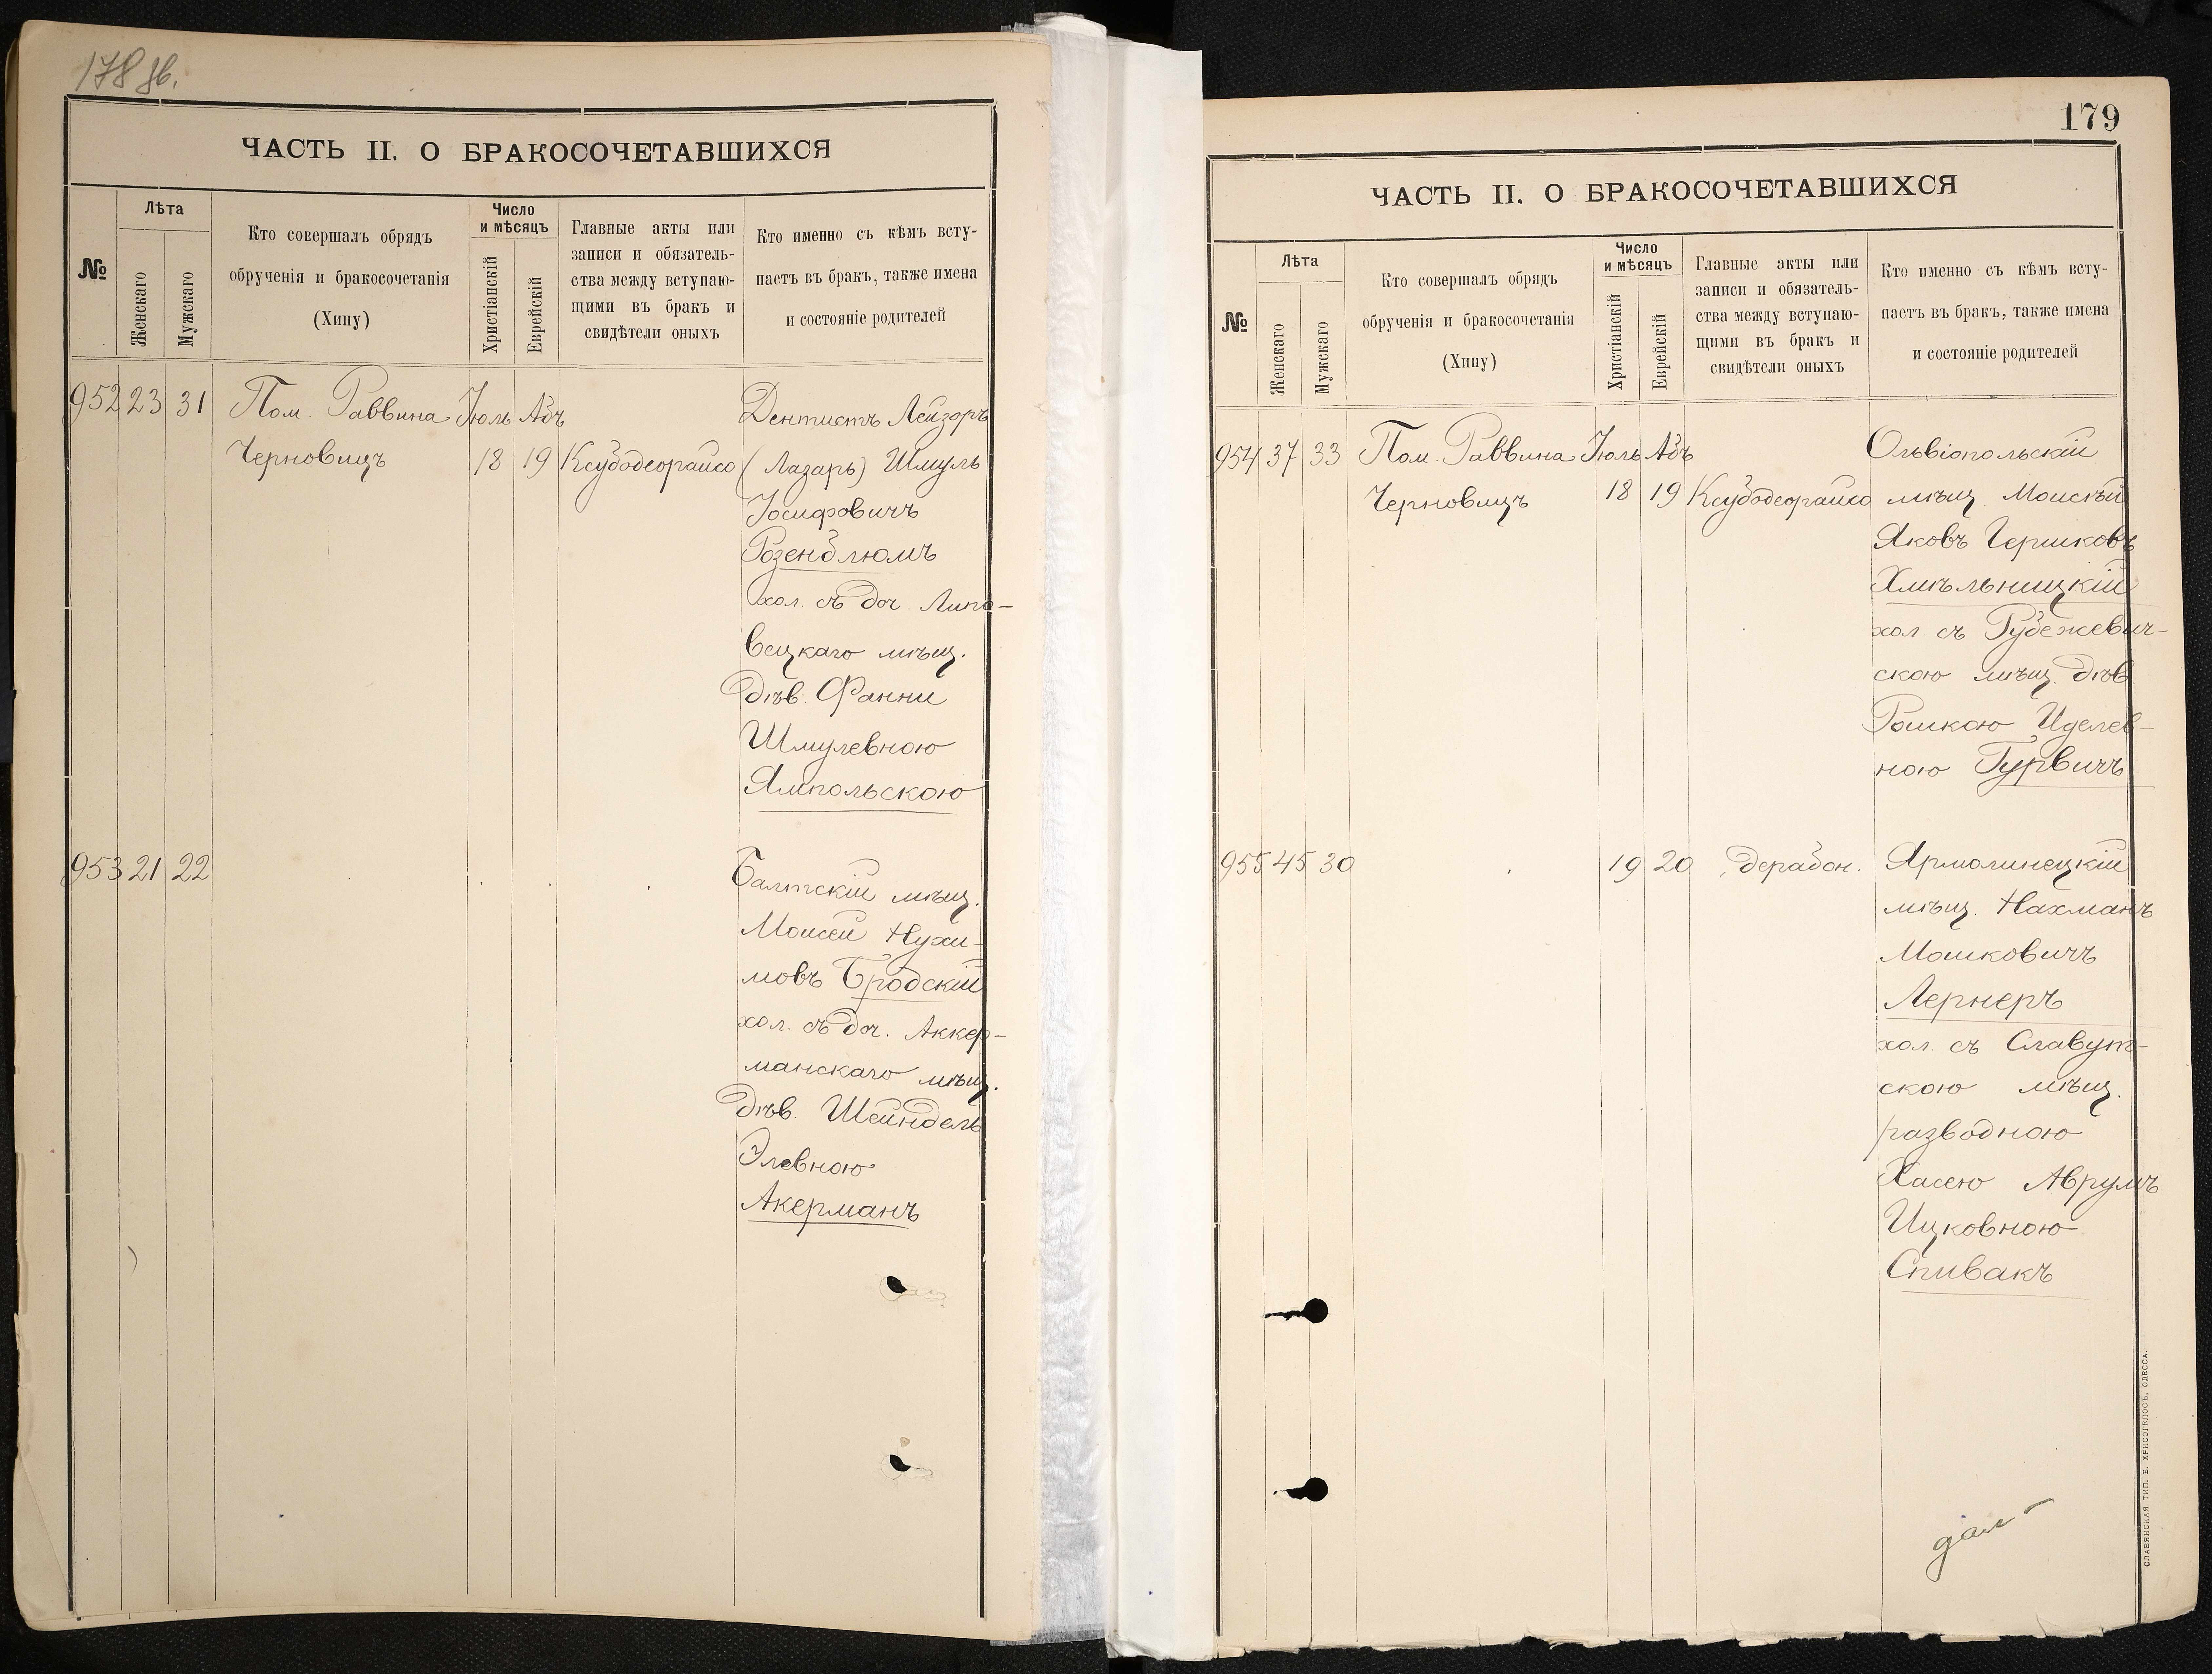 178 зв.
ЧАСТЬ II. О БРАКОСОЧЕТАВШИХСЯ
№
Лѣта
Женскаго
Мужскаго
Кто совершалъ обрядъ
обрученія и бракосочетанія
(Хипу)
Число
и мѣсяцъ
Христіанскій
Еврейскій
Главные акты или
записи и обязатель-
ства между вступаю-
щими въ бракъ и
свидѣтели оныхъ
Кто именно съ кѣмъ всту-
паетъ въ бракъ, также имена
и состояніе родителей
952 23 31 Пом. Раввина Іюль Абъ Дентистъ Лейзоръ
Черновицъ 18 19 Ксубодеорайсо (Лазарь) Шмуль
Іосифовичъ
Розенблюмъ
хол. съ доч. Липо-
вецкаго мѣщ.
Дѣв. Фанни
Шмулевною
Ямпольскою
953 21 22 Балтскій мѣщ.
Моисей Нухи-
мовъ Бродскій
хол. съ доч. Аккер-
манскаго мѣщ.
Дѣв. Шейндель
Элевною
Акерманъ
179
ЧАСТЬ II. О БРАКОСОЧЕТАВШИХСЯ
№
Лѣта
Женскаго
Мужскаго
Кто совершалъ обрядъ
обрученія и бракосочетанія
(Хипу)
Число
и мѣсяцъ
Христіанскій
Еврейскій
Главные акты или
записи и обязатель-
ства между вступаю-
щими въ бракъ и
свидѣтели оныхъ
Кто именно съ кѣмъ всту-
паетъ въ бракъ, также имена
и состояніе родителей
954 37 33 Пом. Раввина Іюль Абъ Ольвіопольскій
Черновицъ 18 19 Ксубодеорайсо мѣщ. Моисѣй
Яковъ Гершковъ
Хмѣльницкій
хол. съ Рубежевич-
скою мѣщ. дѣв.
Рошкою Иделев-
ною Гурвичъ
955 45 30 19 20 дерабон. Ярмолинецкій
мѣщ. Нахманъ
Мошковичъ
Лернеръ
хол. съ Славут-
скою мѣщ.
разводною
Хасею Аврумъ
Ицковною
Спивакъ
СЛАВЯНСКАЯ ТИП. Е. ХРИСОГЕЛОСЪ, ОДЕССА.